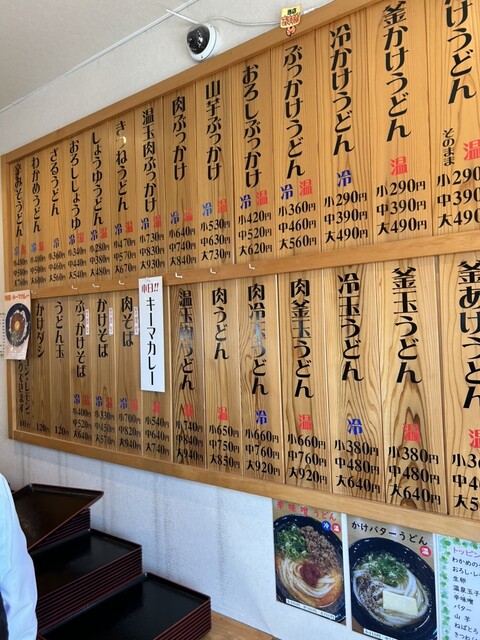 かけうどん
そのまま
温
小290円
中390円
大490円
釜かけうどん
温
小290円
中390円
大490円
冷かけうどん
冷
小290円
中390円
大490円
ぶっかけうどん
冷 温
小360円
中460円
大560円
おろしぶっかけ
冷 温
小420円
中520円
大620円
山芋ぶっかけ
冷 温
小530円
中630円
大730円
肉ぶっかけ
冷 温
小640円
中740円
大840円
温玉肉ぶっかけ
冷 温
小730円
中830円
大930円
きつねうどん
冷 温
小470円
中570円
大670円
しょうゆうどん
冷 温
小280円
中380円
大480円
おろししょうゆ
冷 温
小340円
中440円
大540円
ざるうどん
冷
わかめうどん
冷 温
釜あげうどん
温
釜玉うどん
温
小380円
中480円
大640円
冷玉うどん
冷
小380円
中480円
大640円
肉釜玉うどん
温
小660円
中760円
大920円
肉冷玉うどん
冷
小660円
中760円
大920円
肉うどん
温
小650円
中750円
大850円
温玉肉うどん
温
小740円
中840円
大940円
本日!!
キーマカレー
小540円
中640円
大740円
肉そば
冷 温
小700円
中820円
大940円
かけそば
冷 温
小330円
中450円
大570円
ぶっかけそば
冷 温
小400円
中520円
大640円
うどん玉
120円
かけダシ
120円
辛味噌うどん
冷 温
かけバターうどん
温
トッピング
わかめ
おろし
生卵
温泉玉子
辛味噌
バター
山芋